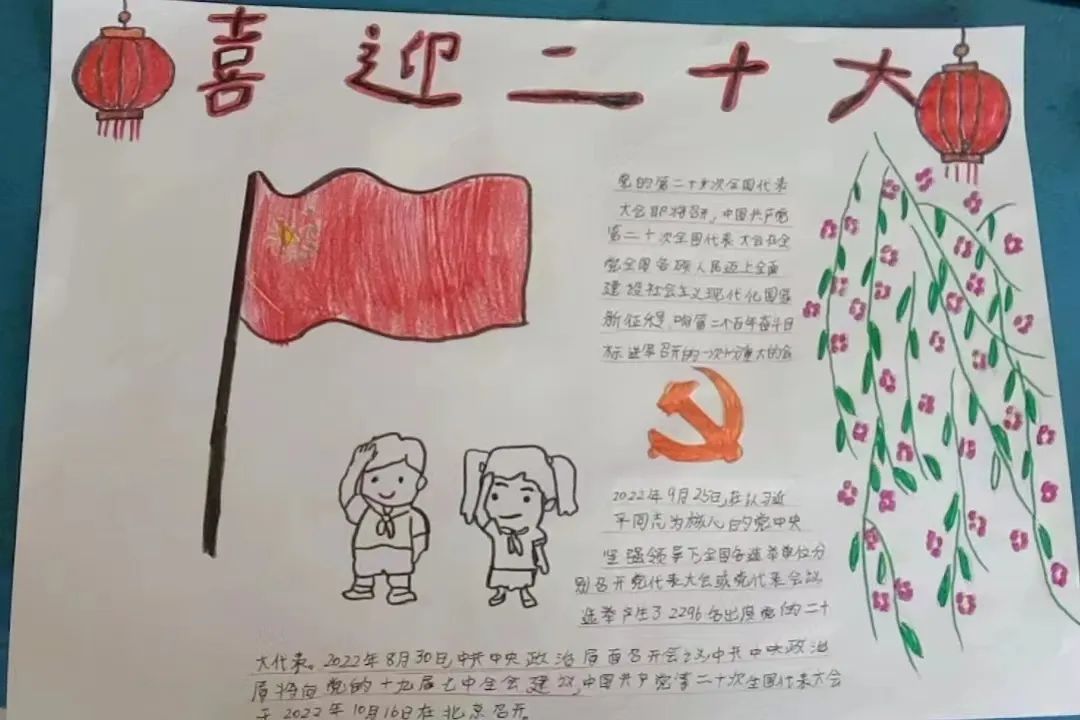 喜迎二十大
党的第二十次全国代表
大会即将召开,中国共产党
第二十次全国代表大会在全
党全国各族人民迈上全面
建设社会主义现代化国家
新征程,向第二个百年奋斗目
标进军召开的一次重大的会
2022年9月25日,在以习近
平同志为核心的党中央
坚强领导下全国各选举单位分
别召开党代表大会或党代表会议
选举产生了2296名出席党的二十
大代表。2022年8月30日,中共中央政治局召开会议,中共中央政治
局将向党的十九届七中全会建议,中国共产党第二十次全国代表大会
于2022年10月16日在北京召开。